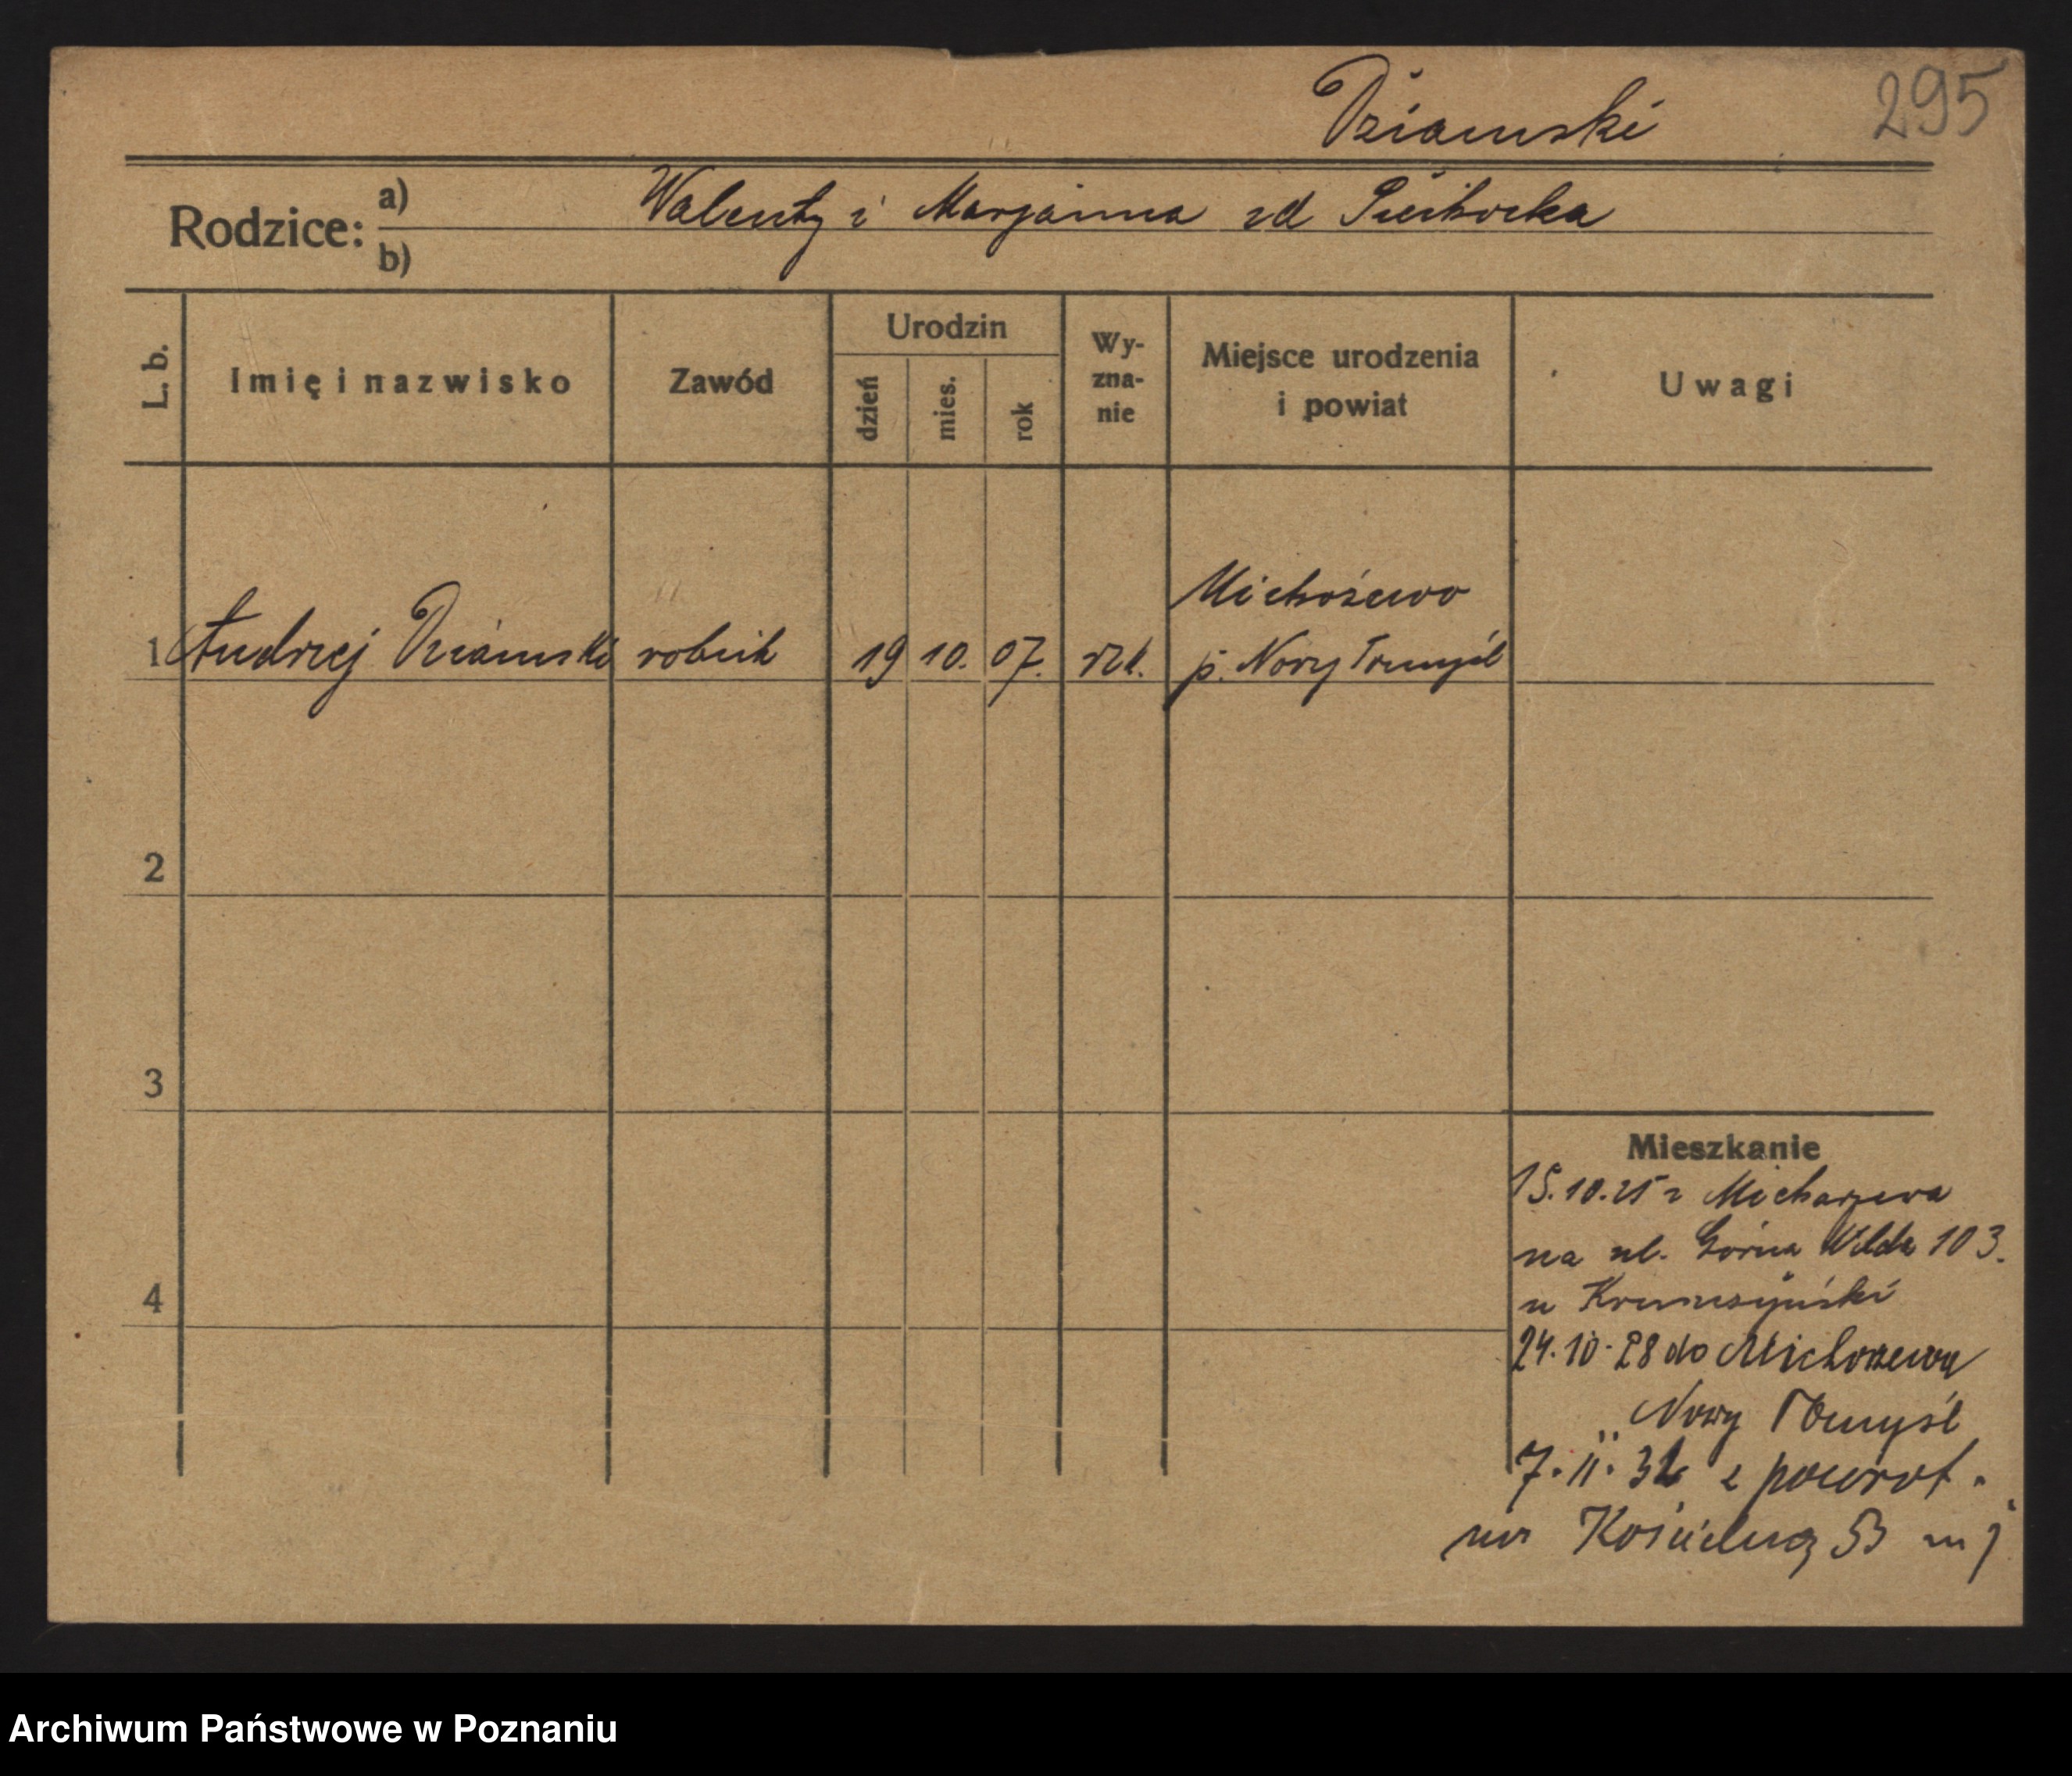 Dziamski
295
Rodzice: a) Walenty i Marjanna zd Piechocka
b)
L. b.
Imię i nazwisko
Zawód
Urodzin
dzień
mies.
rok
Wy-
zna-
nie
Miejsce urodzenia
i powiat
Uwagi
Michożewo
1 Andrzej Dziamski robnik 19 10. 07. rzk. p. Nowy Tomyśl
2
3
4
Mieszkanie
15.10.25 z Micharzewa
na ul. Górna Wilda 103.
u
24.10.28 do Michorzewa
" Nowy Tomyśl
7. II. 32 z powrot.
na Kościelną 53 m
Archiwum Państwowe w Poznaniu